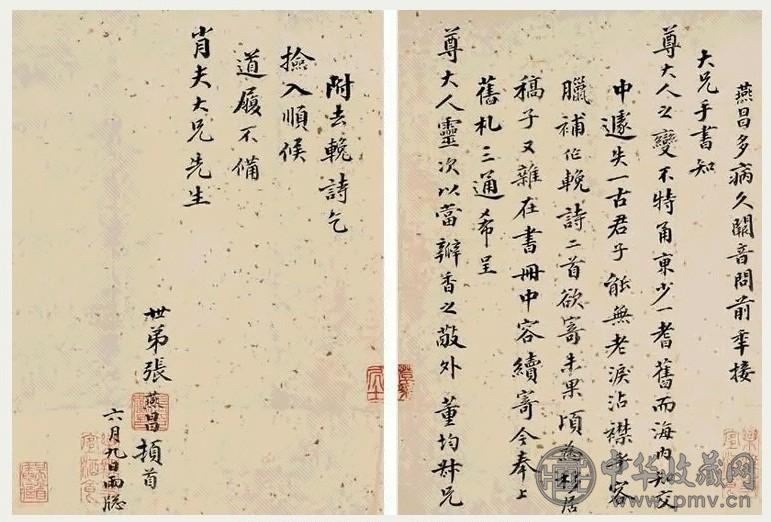 燕昌多病久闊音問前秊接
大兄手書知
尊大人之變不特甬東少一耆舊而海內知交
中遽失一古君子能無老淚沾襟乎客
臘補作輓詩二首欲寄未果頃居
稿子又雜在書冊中容續寄今奉上
舊札三通希呈
尊大人靈次以當瓣香之敬外董均兄
附去輓詩乞
撿入順候
道履不備
肖夫大兄先生
世弟張燕昌頓首
六月九日雨牕
中华收藏网
www.pmv.cn